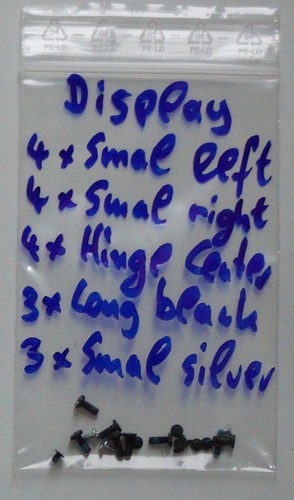 PE-LD PE-LD PE-LD
Display
4 x Smal left
4 x Smal right
4 x Hinge Center
3 x Long black
3 x Smal silver